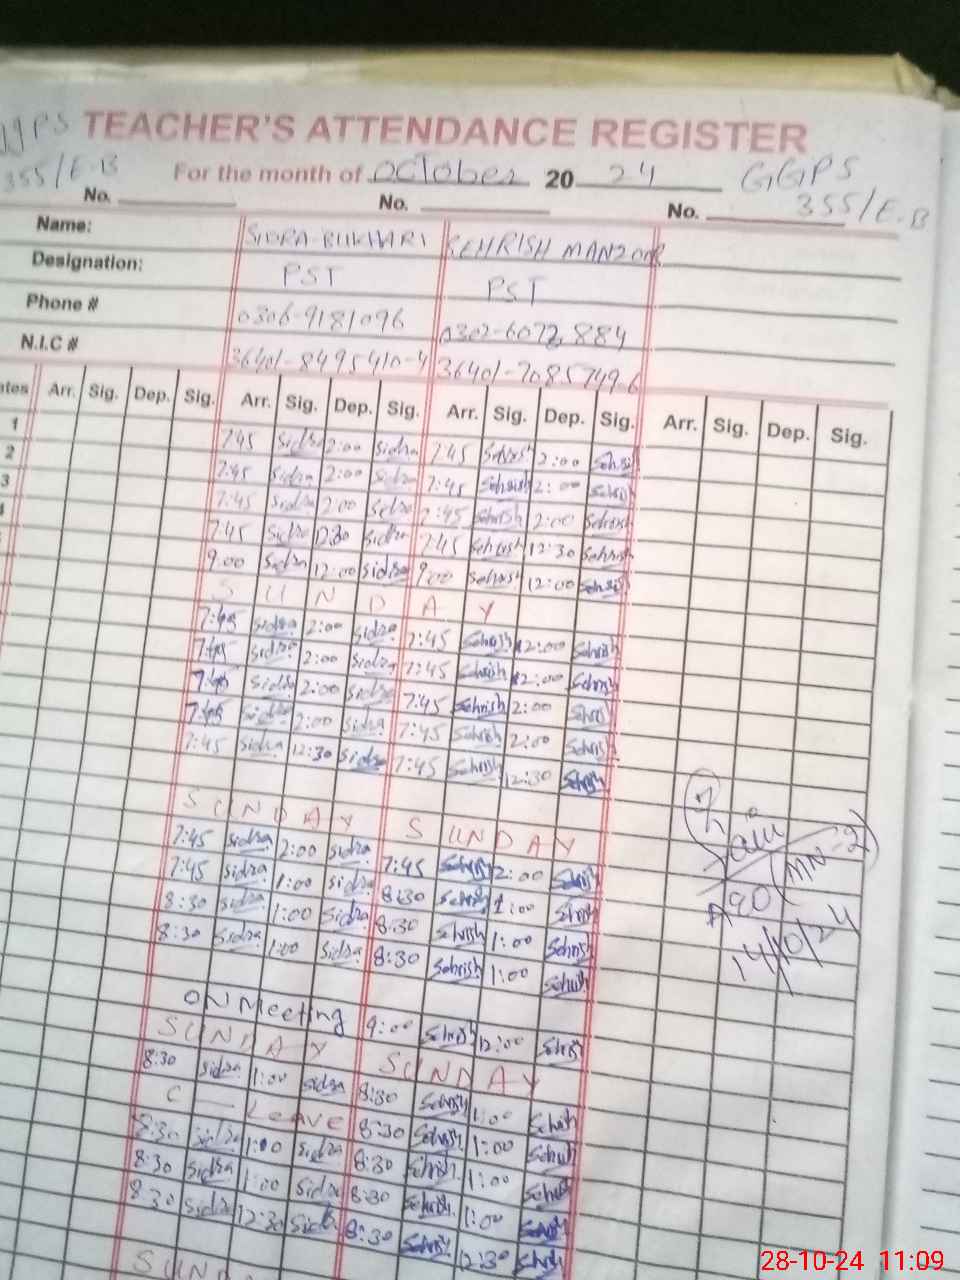 GGPS TEACHER'S ATTENDANCE REGISTER
355/E.B For the month of OCTober 2024 GGPS
No. No. No. 355/E.B
Name: SIDRA BUKHARI SEHRISH MANZOOR
Designation: PST PST
Phone # 0306-9181096 0302-6072884
N.I.C # 36401-8495410-4 36401-7085749-6
Arr. Sig. Dep. Sig. Arr. Sig. Dep. Sig. Arr. Sig. Dep. Sig. Arr. Sig. Dep. Sig.
1 7:45 Sidra 2:00 Sidra 7:45 Sehrish 2:00 Sehrish
2 7:45 Sidra 2:00 Sidra 7:45 Sehrish 2:00 Sehrish
3 7:45 Sidra 2:00 Sidra 7:45 Sehrish 2:00 Sehrish
7:45 Sidra 12:30 Sidra 7:45 Sehrish 12:30 Sehrish
9:00 Sidra 12:00 Sidra 9:00 Sehrish 12:00 Sehrish
SUNDAY
7:45 Sidra 2:00 Sidra 7:45 Sehrish 2:00 Sehrish
7:45 Sidra 2:00 Sidra 7:45 Sehrish 2:00 Sehrish
7:45 Sidra 2:00 Sidra 7:45 Sehrish 2:00 Sehrish
7:45 Sidra 2:00 Sidra 7:45 Sehrish 2:00 Sehrish
7:45 Sidra 12:30 Sidra 7:45 Sehrish 12:30 Sehrish
SUNDAY SUNDAY
7:45 Sidra 2:00 Sidra 7:45 Sehrish 2:00 Sehrish
7:45 Sidra 1:00 Sidra 8:30 Sehrish 1:00 Sehrish
8:30 Sidra 1:00 Sidra 8:30 Sehrish 1:00 Sehrish
8:30 Sidra 1:00 Sidra 8:30 Sehrish 1:00 Sehrish
(MN-2)
14/10/24
ON Meeting 9:00 Sehrish 12:00 Sehrish
SUNDAY SUNDAY
8:30 Sidra 1:00 Sidra 8:30 Sehrish 1:00 Sehrish
C — Leave 8:30 Sehrish 1:00 Sehrish
8:30 Sidra 1:00 Sidra 8:30 Sehrish 1:00 Sehrish
8:30 Sidra 1:00 Sidra 8:30 Sehrish 1:00 Sehrish
8:30 Sidra 12:30 Sidra 8:30 Sehrish 12:30 Sehrish
SUNDA
28-10-24 11:09